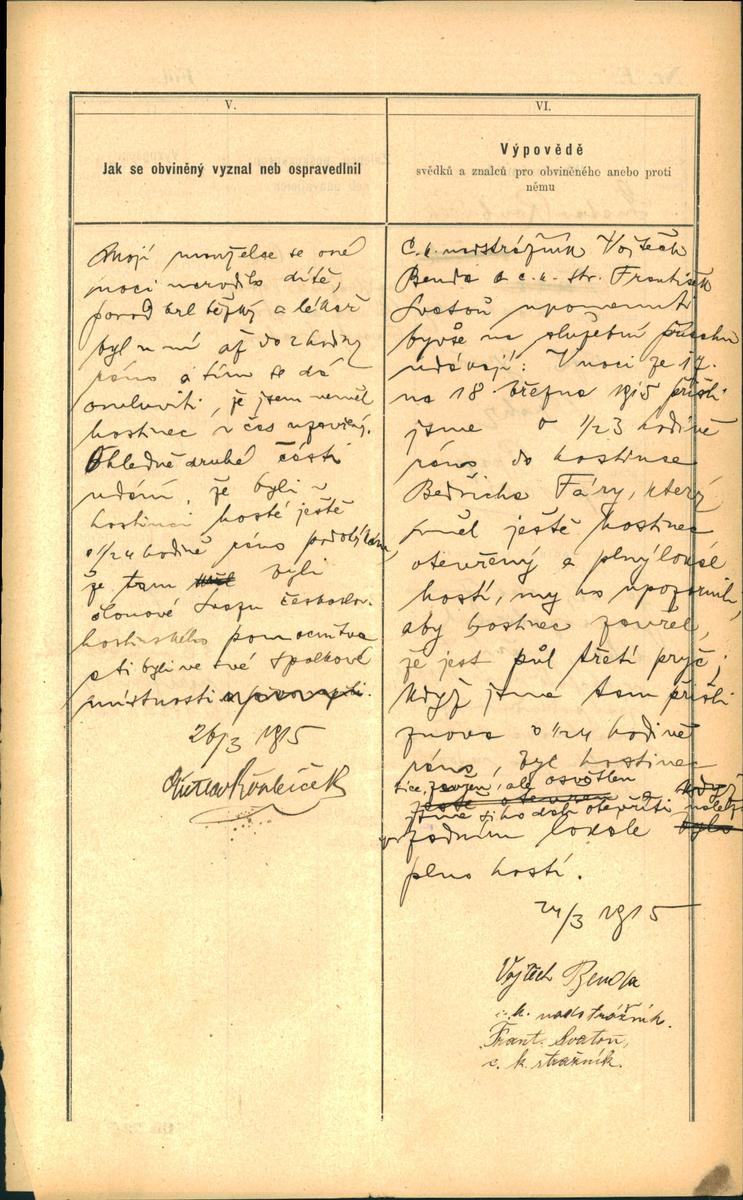 V.
Jak se obviněný vyznal neb ospravedlnil
Mojí manželce se oné
noci narodilo dítě,
porod byl těžký a lékař
byl u ní až do 2 hodiny
ráno a tím se dá
omluviti, že jsem neměl
hostinec v čas uzavřený.
Ohledně druhé části
udání, že byli v
hostinci hosté ještě
o 1/24 hodině ráno podotýkám,
že tam byli
členové Svazu českoslov.
hostinského pomocnictva
a ti byli ve své spolkové
místnosti
26/3 1915
VI.
Výpovědě
svědků a znalců pro obviněného anebo proti
němu
C. k. nadstrážník Vojtěch
Benda a c. k. str. František
Svatoň upomenuti
byvše na služební přísahu
udávají: V noci ze 17.
na 18 března 1915 přišli
jsme o 1/23 hodině
ráno do hostince
Bedřicha Fáry, který
měl ještě hostinec
otevřený a plný lokál
hostí, my ho upozornili,
aby hostinec zavřel,
že jest půl třetí pryč;
když jsme tam přišli
znova o 1/24 hodině
ráno, byl hostinec
sice zavřený, ale osvětlen
a když
jsme si ho dali otevříti
zadním lokale bylo
plno hostí.
24/3 1915
Vojtěch Benda
c. k. nadstrážník.
Frant. Svatoň,
c. k. strážník.